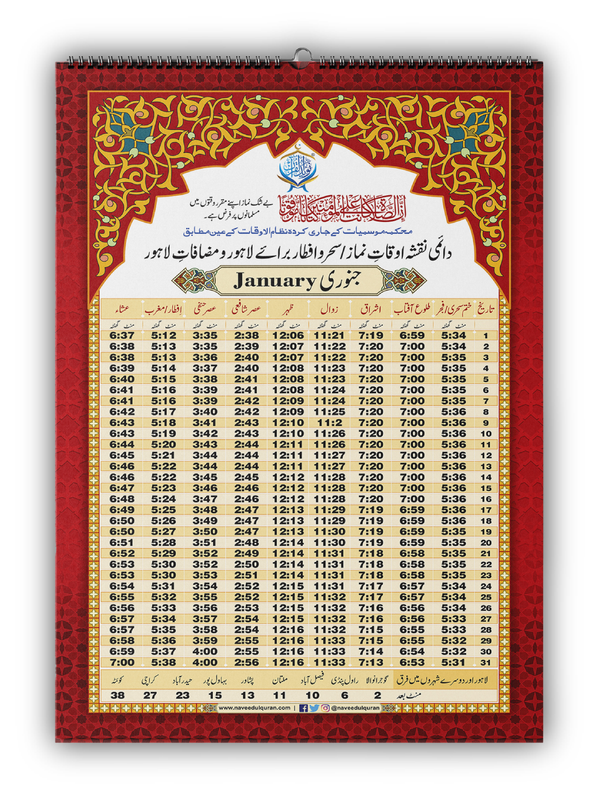 نور القرآن
بے شک نماز اپنے مقررہ وقتوں میں
مسلمانوں پر فرض ہے۔
محکمہ موسمیات کے جاری کردہ نظام الاوقات کے عین مطابق
دائمی نقشہ اوقات نماز/سحر و افطار برائے لاہور و مضافات لاہور
جنوری January
تاریخ ختم سحری/فجر طلوع آفتاب اشراق زوال ظہر عصر شافعی عصر حنفی افطار/مغرب عشاء
گھنٹہ منٹ گھنٹہ منٹ گھنٹہ منٹ گھنٹہ منٹ گھنٹہ منٹ گھنٹہ منٹ گھنٹہ منٹ گھنٹہ منٹ گھنٹہ منٹ
1 5:34 6:59 7:19 11:21 12:06 2:38 3:35 5:12 6:37
2 5:34 7:00 7:20 11:22 12:07 2:39 3:35 5:13 6:38
3 5:35 7:00 7:20 11:22 12:07 2:40 3:36 5:13 6:38
4 5:35 7:00 7:20 11:23 12:08 2:40 3:37 5:14 6:39
5 5:35 7:00 7:20 11:23 12:08 2:41 3:38 5:15 6:40
6 5:35 7:00 7:20 11:24 12:08 2:41 3:39 5:16 6:41
7 5:35 7:00 7:20 11:24 12:09 2:41 3:40 5:16 6:41
8 5:36 7:00 7:20 11:25 12:09 2:42 3:40 5:17 6:42
9 5:36 7:00 7:20 11:2 12:10 2:43 3:41 5:18 6:43
10 5:36 7:00 7:20 11:26 12:10 2:43 3:42 5:19 6:43
11 5:36 7:00 7:20 11:26 12:11 2:44 3:43 5:20 6:44
12 5:36 7:00 7:20 11:27 12:11 2:44 3:44 5:21 6:45
13 5:36 7:00 7:20 11:27 12:11 2:44 3:44 5:22 6:46
14 5:36 7:00 7:20 11:28 12:12 2:45 3:45 5:22 6:46
15 5:36 7:00 7:20 11:28 12:12 2:46 3:46 5:23 6:47
16 5:36 7:00 7:20 11:28 12:12 2:46 3:47 5:24 6:48
17 5:36 6:59 7:19 11:29 12:13 2:47 3:48 5:25 6:49
18 5:36 6:59 7:19 11:29 12:13 2:47 3:49 5:26 6:50
19 5:35 6:59 7:19 11:30 12:13 2:47 3:50 5:27 6:50
20 5:35 6:59 7:19 11:30 12:14 2:48 3:51 5:28 6:51
21 5:35 6:58 7:18 11:31 12:14 2:49 3:52 5:29 6:52
22 5:35 6:58 7:18 11:31 12:14 2:50 3:52 5:30 6:53
23 5:35 6:58 7:18 11:31 12:14 2:51 3:53 5:30 6:53
24 5:34 6:57 7:17 11:31 12:15 2:52 3:54 5:31 6:54
25 5:34 6:57 7:17 11:32 12:15 2:52 3:55 5:32 6:55
26 5:34 6:56 7:16 11:32 12:15 2:53 3:56 5:33 6:56
27 5:33 6:56 7:16 11:32 12:15 2:54 3:57 5:34 6:57
28 5:33 6:55 7:15 11:32 12:16 2:54 3:58 5:35 6:57
29 5:32 6:55 7:15 11:33 12:16 2:55 3:59 5:36 6:58
30 5:32 6:54 7:14 11:33 12:16 2:55 4:00 5:37 6:59
31 5:31 6:53 7:13 11:33 12:16 2:56 4:00 5:38 7:00
لاہور اور دوسرے شہروں میں فرق گوجرانوالا راولپنڈی فیصل آباد ملتان پشاور بہاولپور حیدرآباد کراچی کوئٹہ
منٹ بعد 2 6 10 11 13 15 23 27 38
www.naveedulquran.com | @naveedulquran